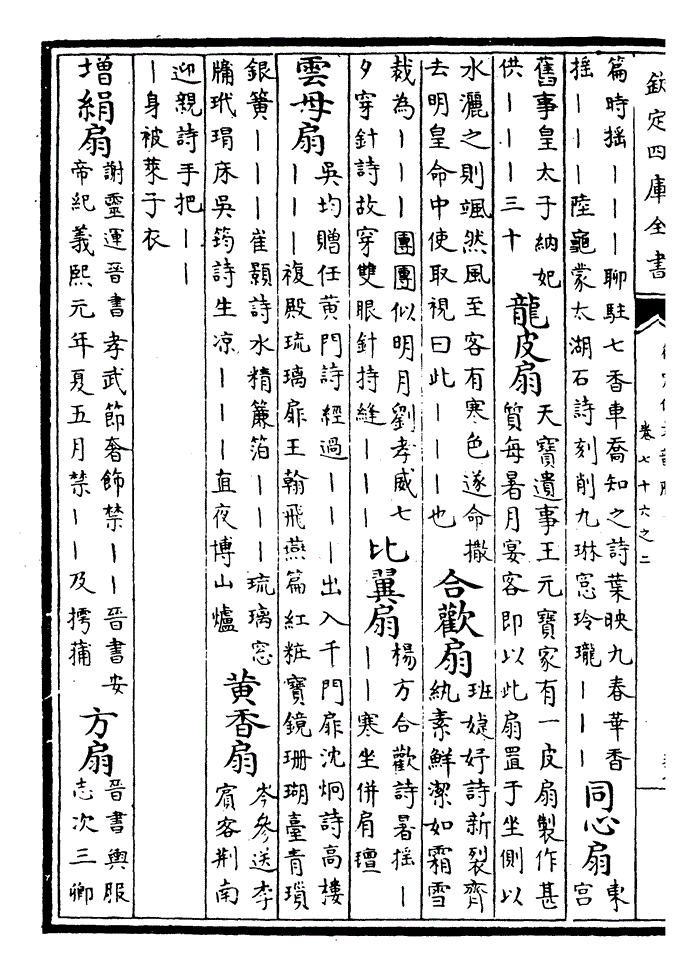 欽定四庫全書
卷七十六之二
篇時揺｜｜｜聊駐七香車喬知之詩葉映九春華香
揺｜｜｜陸龜蒙太湖石詩刻削九琳窓玲瓏｜｜｜
同心扇
東
宫
舊事皇太子納妃
供｜｜｜三十
龍皮扇
天寶遺事王元寶家有一皮扇製作甚
質每暑月宴客即以此扇置于坐側以
水灑之則颯然風至客有寒色遂命撤
去明皇命中使取視曰此｜｜｜也
合歡扇
班婕妤詩新裂齊
紈素鮮潔如霜雪
裁為｜｜｜團團似明月劉孝威七
夕穿針詩故穿雙眼針持縫｜｜｜
比翼扇
楊方合歡詩暑揺｜
｜｜寒坐併肩氊
雲母扇
吳均贈任黄門詩經過｜｜｜出入千門扉沈炯詩高樓
｜｜｜複殿琉璃扉王翰飛燕篇紅粧寶鏡珊瑚臺青瑣
銀簧｜｜｜崔顥詩水精簾箔｜｜｜琉璃窓
牗玳瑁床吳筠詩生凉｜｜｜直夜博山爐
黄香扇
岑參送李
賓客荆南
迎親詩手把｜｜
｜身被萊子衣
增絹扇
謝靈運晉書孝武節奢飾禁｜｜晉書安
帝紀義熙元年夏五月禁｜｜及摴蒱
方扇
晉書輿服
志次三卿